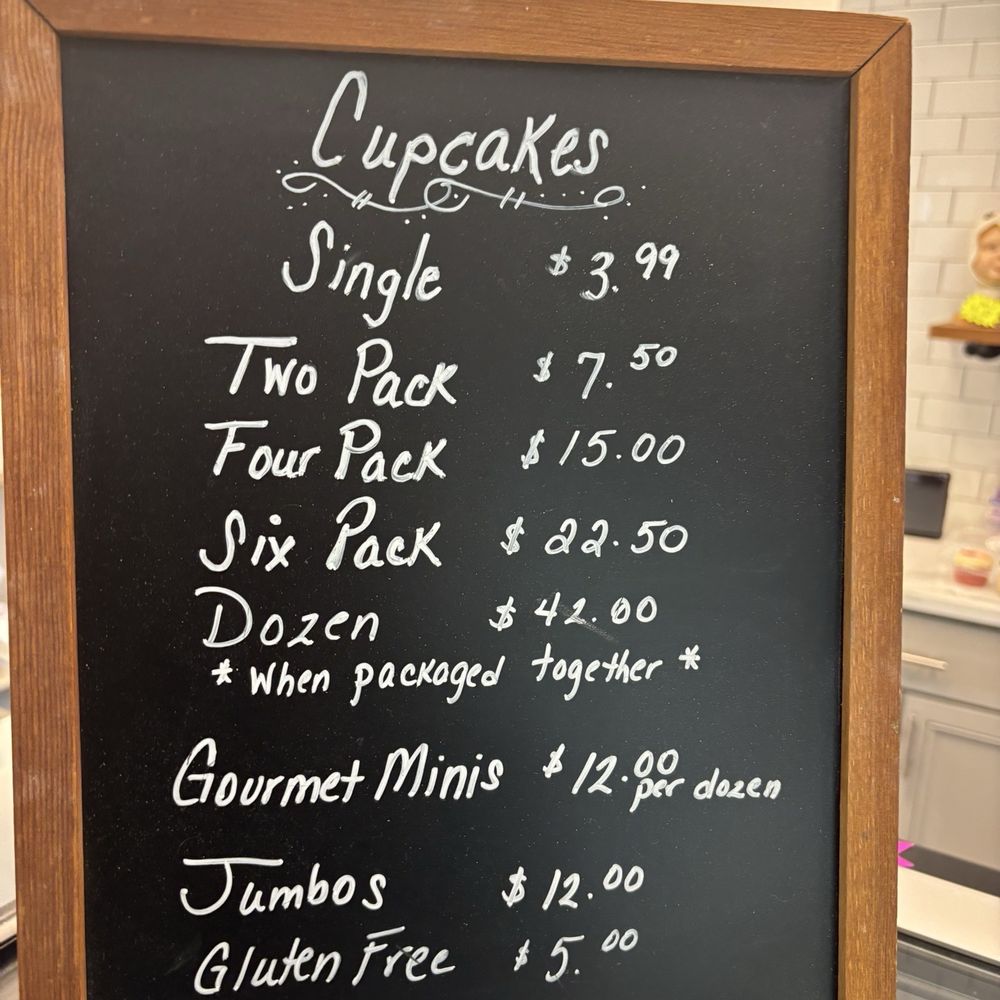 Cupcakes
Single $3.99
Two Pack $7.50
Four Pack $15.00
Six Pack $22.50
Dozen $42.00
*When packaged together*
Gourmet Minis $12.00 per dozen
Jumbos $12.00
Gluten Free $5.00